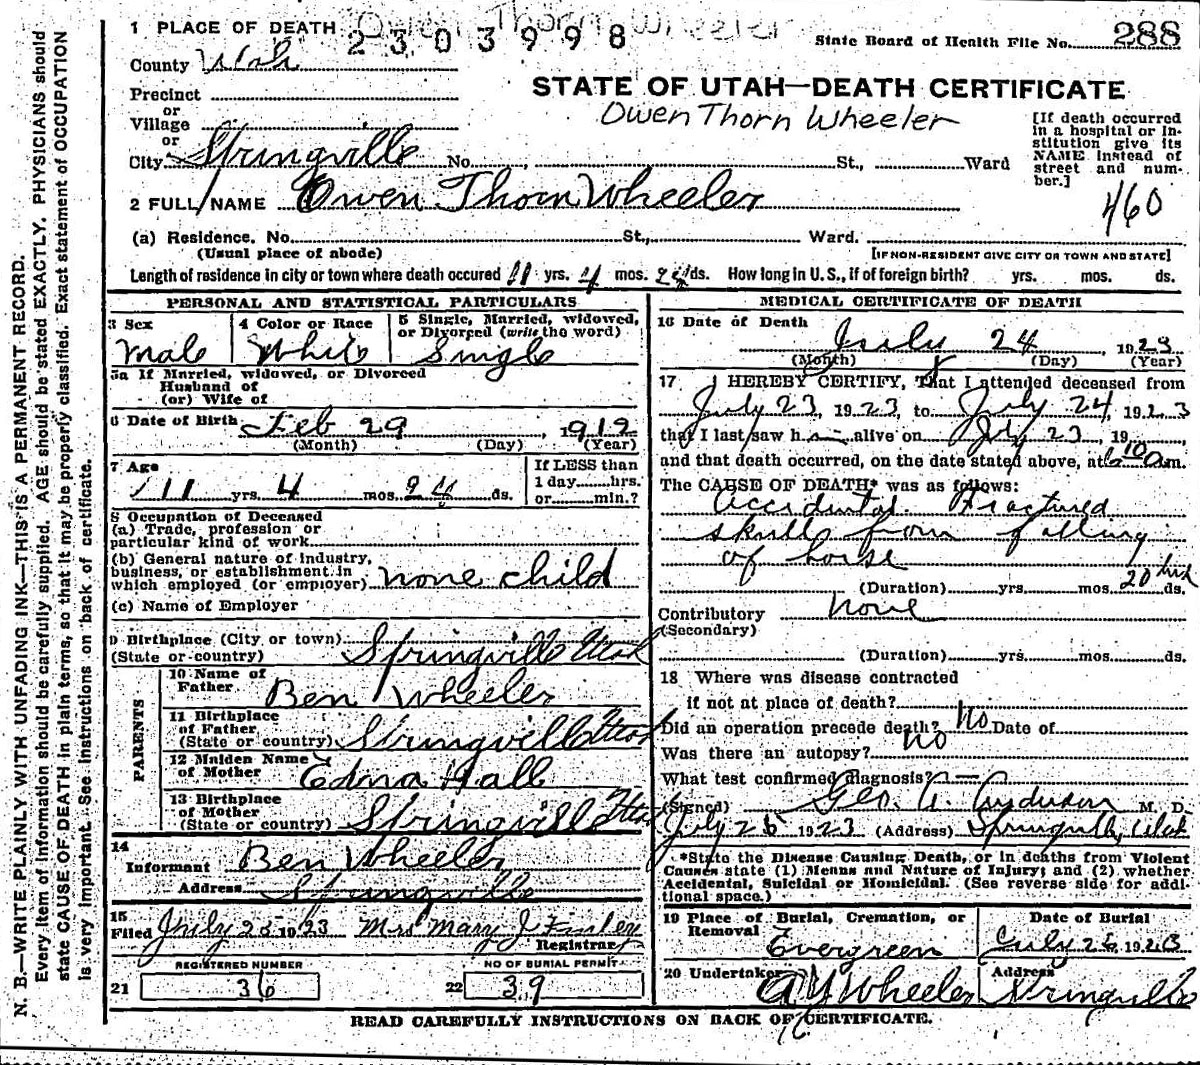 Owen Thorn Wheeler
2303998
1 PLACE OF DEATH
State Board of Health File No. 288
County Utah
STATE OF UTAH—DEATH CERTIFICATE
Precinct
or
Village
or
Owen Thorn Wheeler
[If death occurred
in a hospital or in-
stitution give its
NAME instead of
street and num-
ber.]
City Springville No. , St., Ward
460
2 FULL NAME Owen Thorn Wheeler
(a) Residence. No. St., Ward.
(Usual place of abode)
[IF NON-RESIDENT GIVE CITY OR TOWN AND STATE]
Length of residence in city or town where death occured 11 yrs. 4 mos. 24 ds. How long in U. S., if of foreign birth? yrs. mos. ds.
PERSONAL AND STATISTICAL PARTICULARS
3 Sex
Male
4 Color or Race
White
5 Single, Married, widowed,
or Divorced (write the word)
Single
5a If Married, widowed, or Divorced
Husband of
(or) Wife of
6 Date of Birth Feb 29, 1912
(Month) (Day) (Year)
7 Age
11 yrs. 4 mos. 24 ds.
If LESS than
1 day hrs.
or min.?
8 Occupation of Deceased
(a) Trade, profession or
particular kind of work
(b) General nature of industry,
business, or establishment in
which employed (or employer) none child
(c) Name of Employer
9 Birthplace (City or town)
(State or country) Springville Utah
PARENTS
10 Name of
Father Ben Wheeler
11 Birthplace
of Father
(State or country) Springville Utah
12 Maiden Name
of Mother Edna Hall
13 Birthplace
of Mother
(State or country) Springville Utah
14
Informant Ben Wheeler
Address Springville
15
Filed July 25 1923 Mrs Mary J Finley
Registrar
REGISTERED NUMBER
21 36
NO OF BURIAL PERMIT
22 39
MEDICAL CERTIFICATE OF DEATH
16 Date of Death
July 24, 1923
(Month) (Day) (Year)
17 I HEREBY CERTIFY, That I attended deceased from
July 23, 1923, to July 24, 1923
that I last saw h alive on July 23, 19 ,
and that death occurred, on the date stated above, at 6 10 a m.
The CAUSE OF DEATH* was as follows:
Accidental. Fractured
skull from falling
of horse
(Duration) yrs. mos. 20 ds.
Contributory none
(Secondary)
(Duration) yrs. mos. ds.
18 Where was disease contracted
if not at place of death?
Did an operation precede death? No Date of
Was there an autopsy? no
What test confirmed diagnosis?
(Signed) Geo. A. Anderson M. D.
July 25 1923 (Address) Springville, Utah
*State the Disease Causing Death, or in deaths from Violent
Causes state (1) Means and Nature of Injury; and (2) whether
Accidental, Suicidal or Homicidal. (See reverse side for addi-
tional space.)
19 Place of Burial, Cremation, or
Removal
Evergreen
Date of Burial
July 26, 1923
20 Undertaker
A Y Wheeler
Address
Springville
READ CAREFULLY INSTRUCTIONS ON BACK OF CERTIFICATE.
N. B.—WRITE PLAINLY WITH UNFADING INK—THIS IS A PERMANENT RECORD.
Every item of information should be carefully supplied. AGE should be stated EXACTLY. PHYSICIANS should
state CAUSE OF DEATH in plain terms, so that it may be properly classified. Exact statement of OCCUPATION
is very important. See instructions on back of certificate.